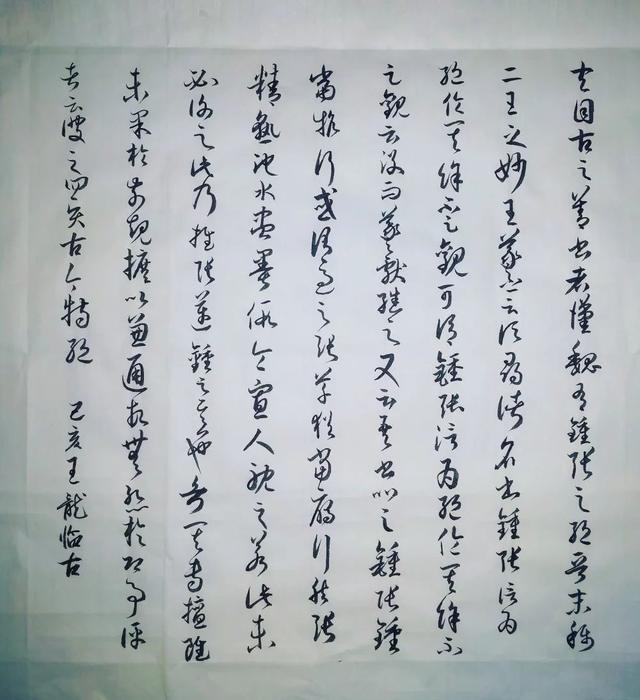 夫自古之善書者漢魏有鍾張之絕晉末稱
二王之妙王羲之云頃尋諸名書鍾張信為
絕倫其餘不足觀可謂鍾張信為絕倫其餘不
足觀云沒而羲獻繼之又云吾書比之鍾張鍾
當抗行或謂過之張草猶當雁行然張
精熟池水盡墨假令寡人耽之若此未
必謝之此乃推張邁鍾之意也考其專擅雖
未果於前規摭以兼通故無慚於即事評
者云彼之四賢古今特絕 己亥王龍臨古